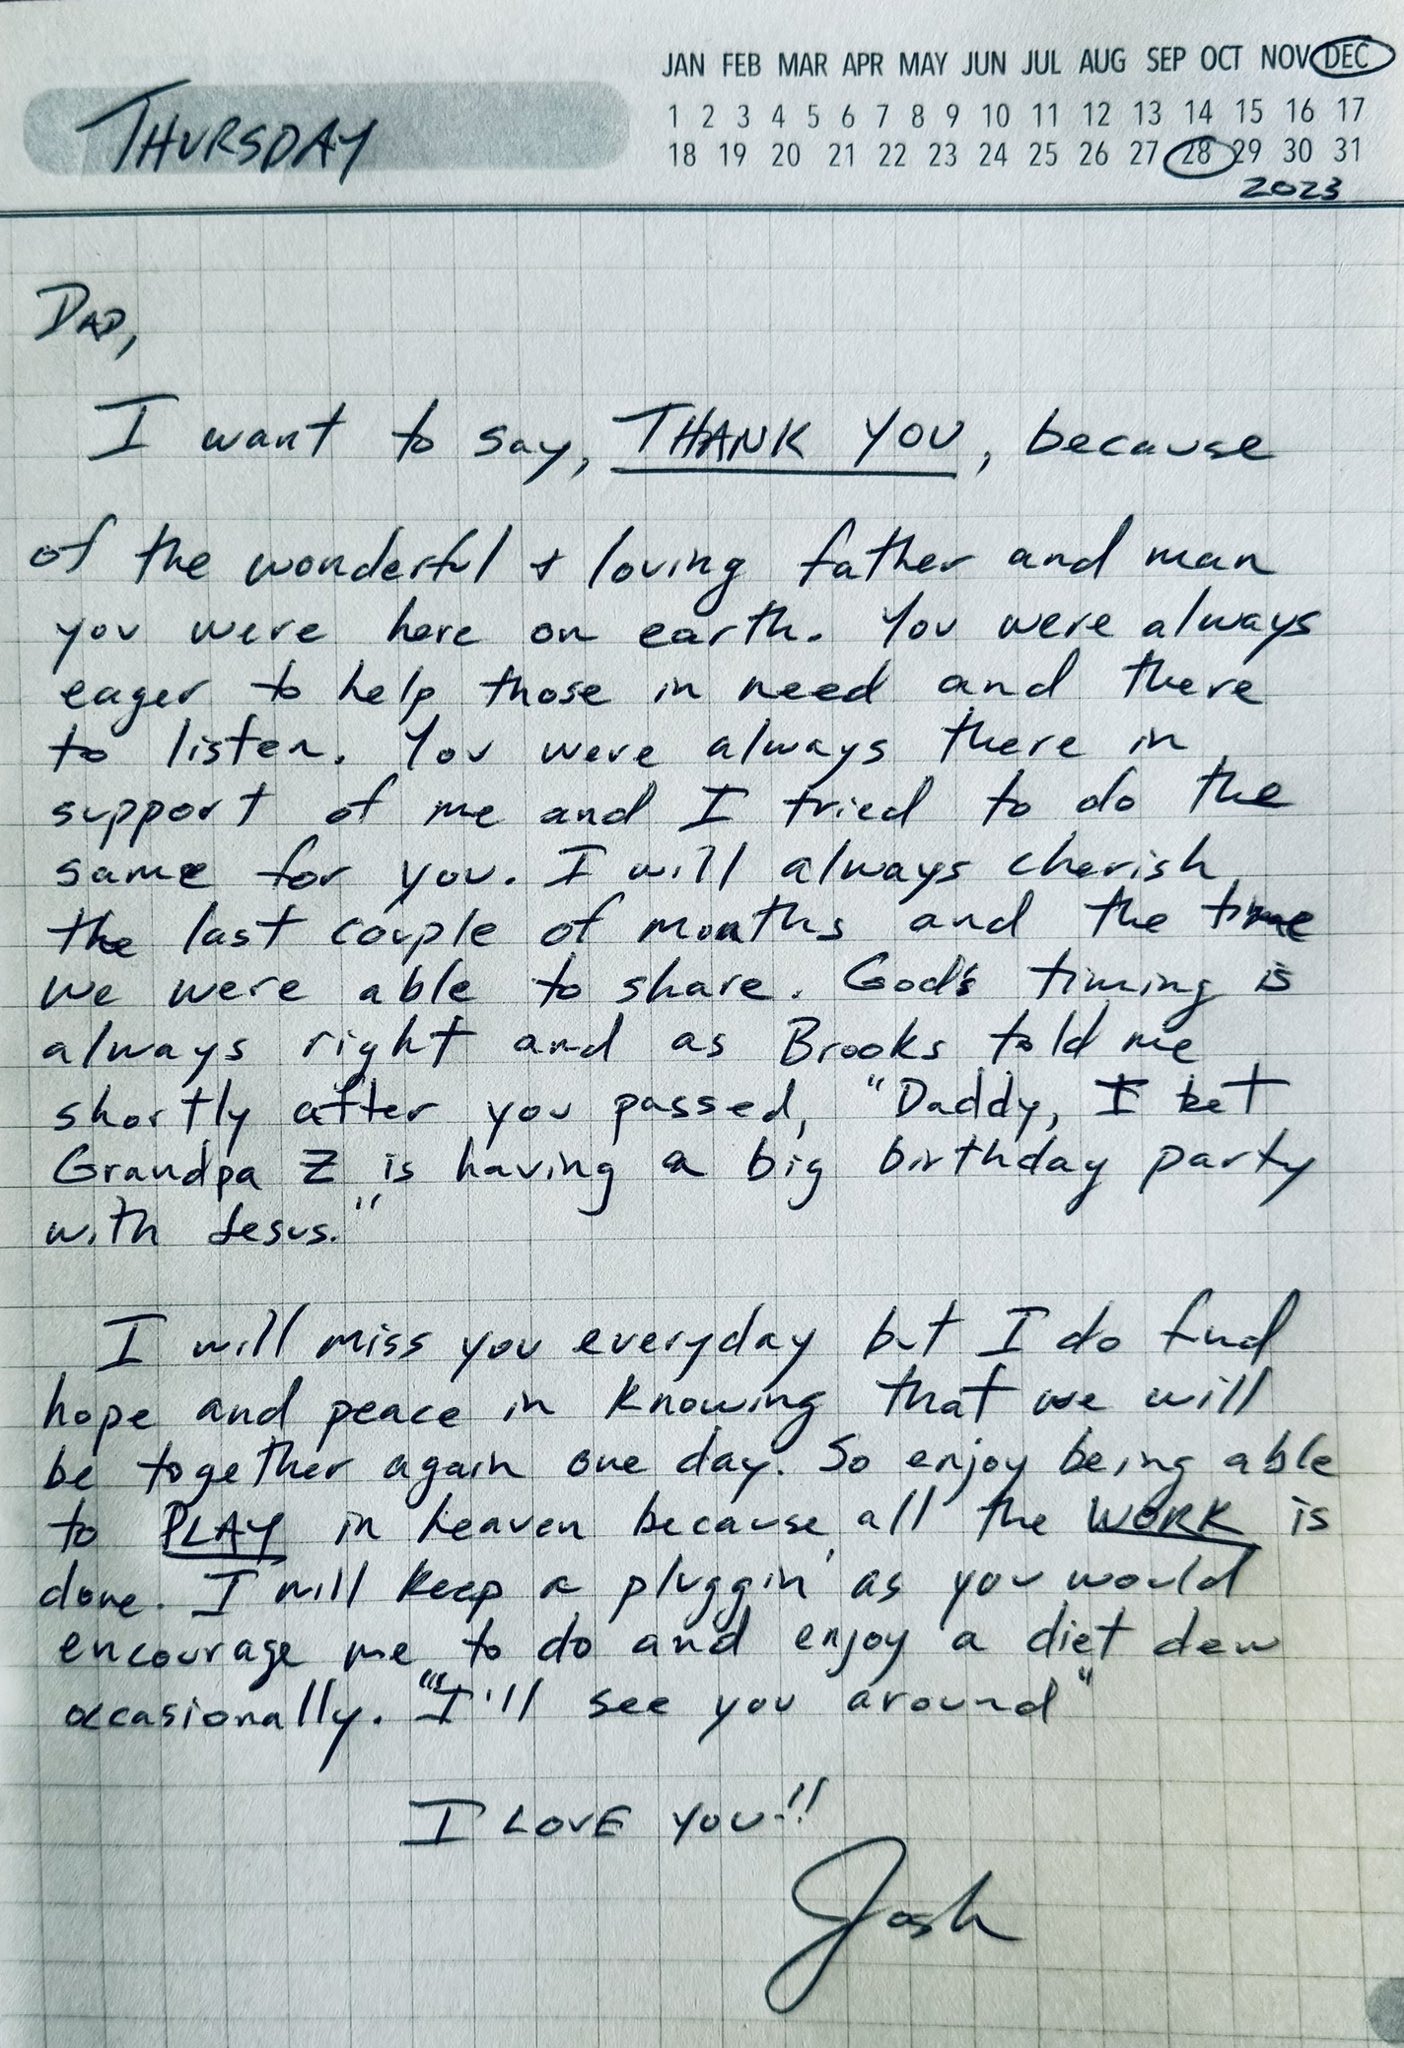 JAN FEB MAR APR MAY JUN JUL AUG SEP OCT NOV DEC
THURSDAY
1 2 3 4 5 6 7 8 9 10 11 12 13 14 15 16 17
18 19 20 21 22 23 24 25 26 27 28 29 30 31
2023
DAD,
I want to say, THANK YOU, because
of the wonderful + loving father and man
you were here on earth. You were always
eager to help those in need and there
to listen. You were always there in
support of me and I tried to do the
same for you. I will always cherish
the last couple of months and the time
we were able to share. God's timing is
always right and as Brooks told me
shortly after you passed, "Daddy, I bet
Grandpa Z is having a big birthday party
with Jesus."
I will miss you everyday but I do find
hope and peace in knowing that we will
be together again one day. So enjoy being able
to PLAY in heaven because all the WORK is
done. I will keep a pluggin' as you would
encourage me to do and enjoy a diet dew
occasionally. "I'll see you around"
I LOVE YOU!!
Josh